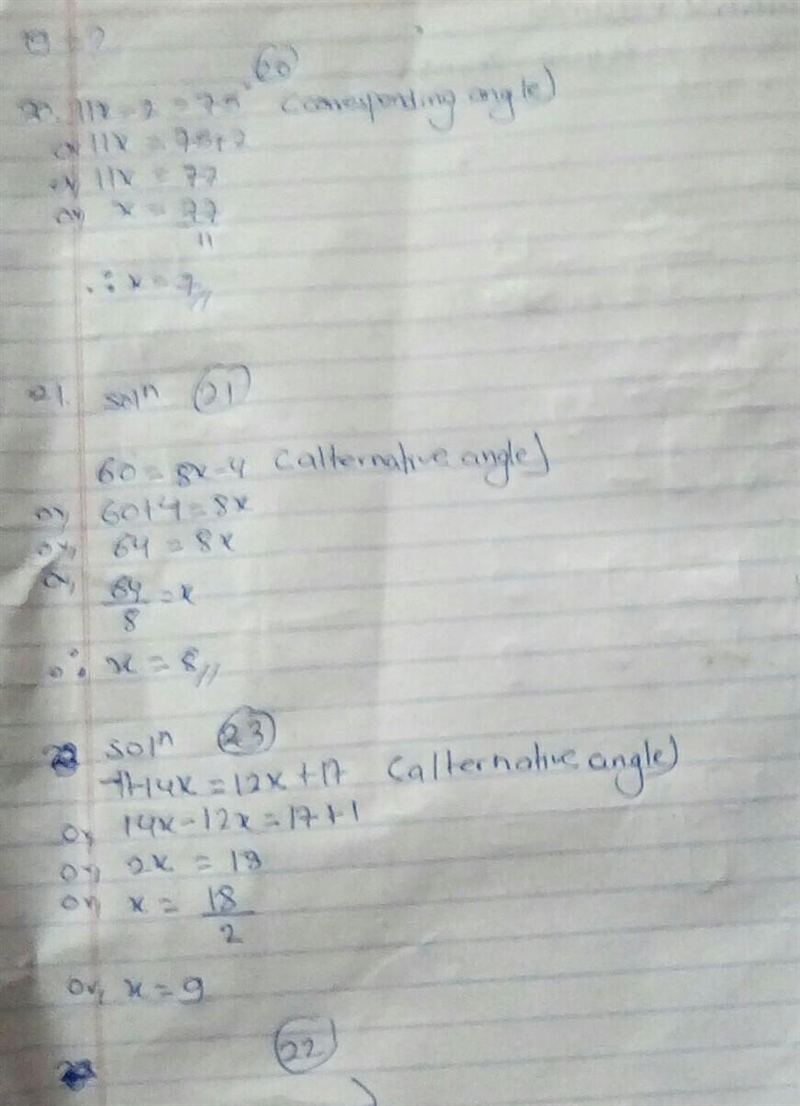 20
20. 11x - 2 = 75° (corresponding angle)
or, 11x = 75+2
or, 11x = 77
or, x = 77/11
∴ x = 7//
21. solⁿ 21
60 = 8x-4 (alternative angle)
or, 60+4 = 8x
or, 64 = 8x
or, 64/8 = x
∴ x = 8//
solⁿ 23
-1+14x = 12x+17 (alternative angle)
or, 14x-12x = 17+1
or, 2x = 18
or, x = 18/2
or, x = 9
22